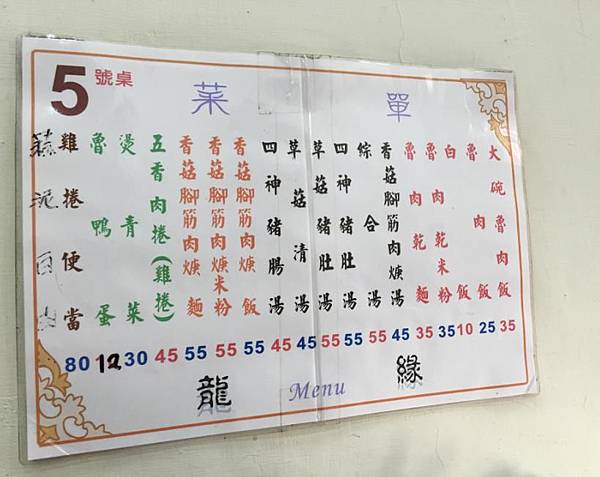 5號桌
菜單
大碗魯肉飯
魯肉飯
白飯
魯肉乾米粉
魯肉乾麵
香菇腳筋肉焿湯
綜合湯
四神豬肚湯
草菇豬肚湯
草菇清湯
四神豬腸湯
香菇腳筋肉焿飯
香菇腳筋肉焿米粉
香菇腳筋肉焿麵
五香肉捲(雞捲)
燙青菜
魯鴨蛋
雞捲便當
80 12 30 45 55 55 55 45 45 55 55 55 45 35 35 10 25 35
龍緣
Menu